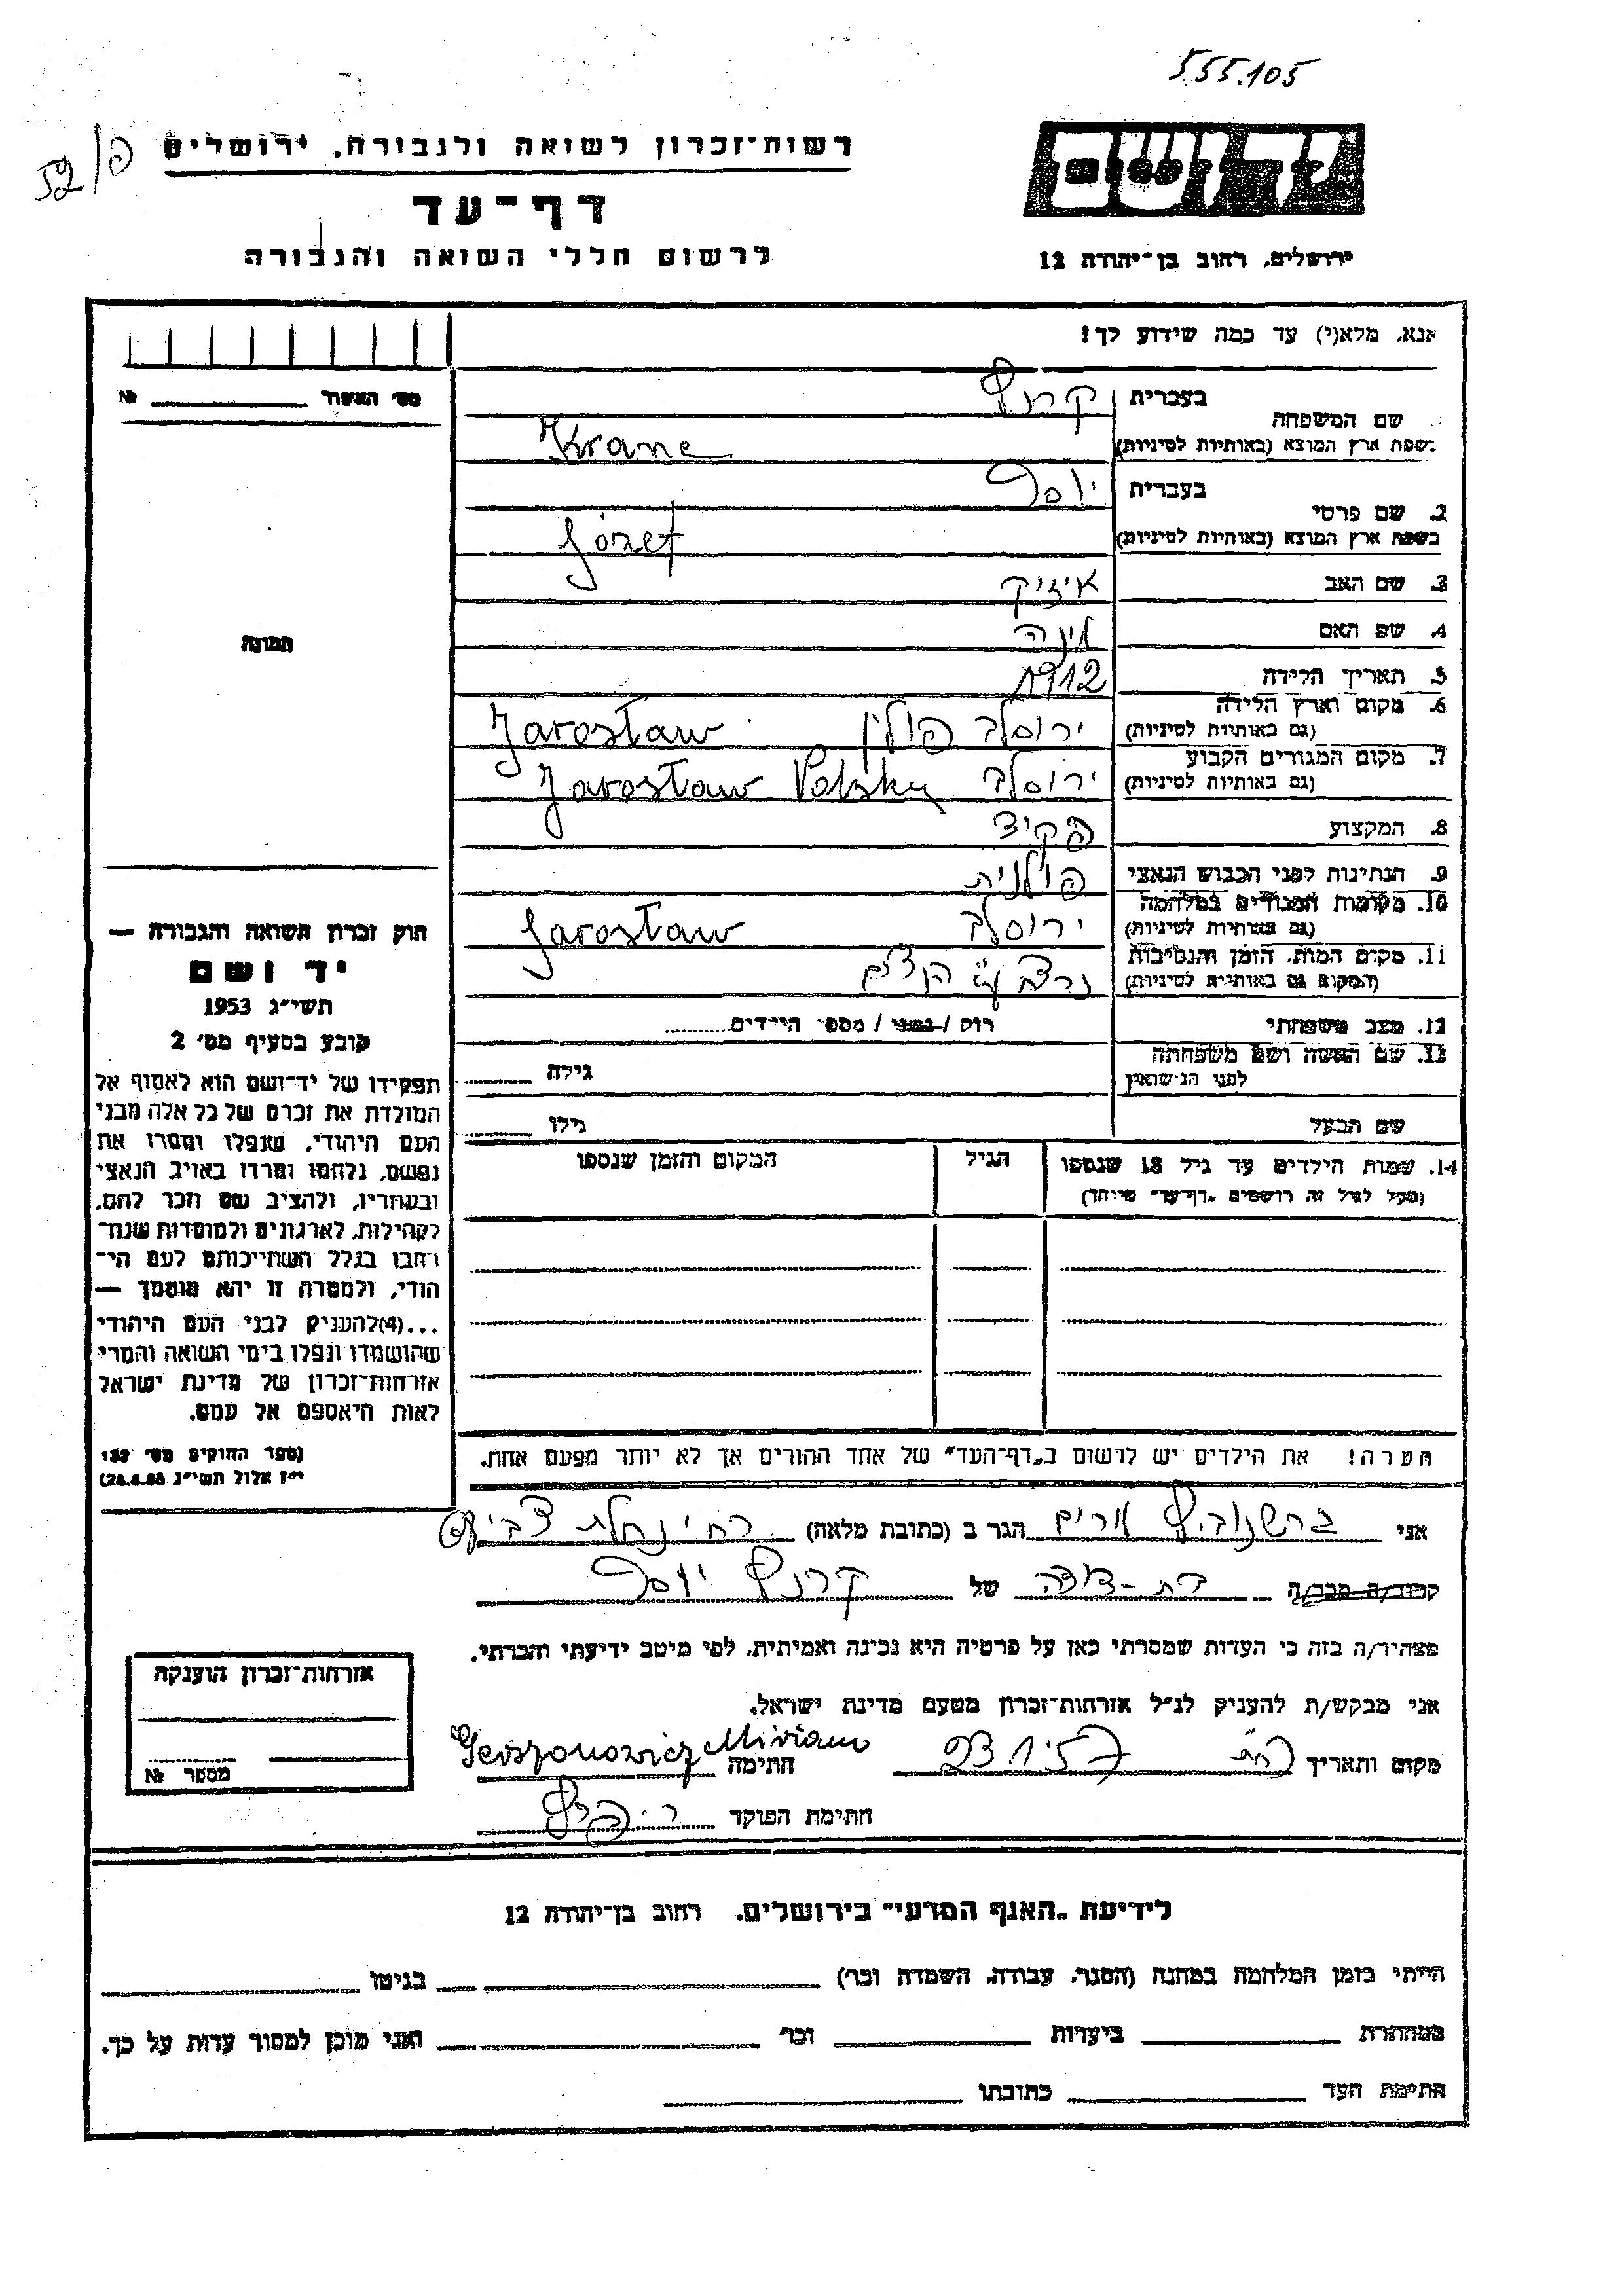 555.105
52/פ
יד ושם
רשות־זכרון לשואה ולגבורה, ירושלים
דף־עד
לרשום חללי השואה והגבורה
ירושלים, רחוב בן־יהודה 12
אנא, מלא(י) עד כמה שידוע לך!
מס׳ האשור № 
בעברית קרנץ
שם המשפחה
בשפת ארץ המוצא (באותיות לטיניות) Krane
בעברית יוסף
2. שם פרטי
בשפת ארץ המוצא (באותיות לטיניות) Józef
3. שם האב אייזיק
4. שם האם
5. תאריך הלידה 1912
6. מקום וארץ הלידה
(גם באותיות לטיניות) ירוסלב פולין Jarosław
7. מקום המגורים הקבוע
(גם באותיות לטיניות) ירוסלב Jarosław Polska
8. המקצוע פקיד
9. הנתינות לפני הכבוש הנאצי פולנית
10. מקומות המגורים במלחמה
(גם באותיות לטיניות) ירוסלב Jarosław
11. מקום המות, הזמן והנסיבות
(המקום גם באותיות לטיניות) נרצח ע״י הנצים
12. מצב משפחתי רווק / נשוי / מספר הילדים
13. שם האשה ושם משפחתה
לפני הנישואין גילה
שם הבעל גילו
14. שמות הילדים עד גיל 18 שנספו הגיל המקום והזמן שנספו
(מעל לגיל זה רושמים „דף־עד״ מיוחד)
הערה! את הילדים יש לרשום ב„דף־העד״ של אחד ההורים אך לא יותר מפעם אחת.
תמונה
חוק זכרון השואה והגבורה —
יד ושם
תשי״ג 1953
קובע בסעיף מס׳ 2
תפקידו של יד־ושם הוא לאסוף אל
המולדת את זכרם של כל אלה מבני
העם היהודי, שנפלו ומסרו את
נפשם, נלחמו ומרדו באויב הנאצי
ובעוזריו, ולהציב שם וזכר להם,
לקהילות, לארגונים ולמוסדות שנח־
רבו בגלל השתייכותם לעם הי־
הודי, ולמטרה זו יהא מוסמך —
...(4)להעניק לבני העם היהודי
שהושמדו ונפלו בימי השואה והמרי
אזרחות־זכרון של מדינת ישראל
לאות היאספם אל עמם.
(ספר החוקים מס׳ 132
י״ז אלול תשי״ג 28.8.53)
אני גרשנוביץ מרים הגר ב (כתובת מלאה)
קרוב/ה מכר/ה בת-דודה של קרנץ יוסף
מצהיר/ה בזה כי העדות שמסרתי כאן על פרטיה היא נכונה ואמיתית, לפי מיטב ידיעתי והכרתי.
אני מבקש/ת להעניק לנ״ל אזרחות־זכרון מטעם מדינת ישראל.
מקום ותאריך 23.1.57 חתימה Gerszonowicz Miriam
חתימת הפוקד
אזרחות־זכרון הוענקה
מספר №
לידיעת „האגף המדעי״ בירושלים, רחוב בן־יהודה 12
הייתי בזמן המלחמה במחנה (הסגר, עבודה, השמדה וכו׳) בגיטו
במחתרת ביערות וכו׳ ואני מוכן למסור עדות על כך.
חתימת העד כתובתו